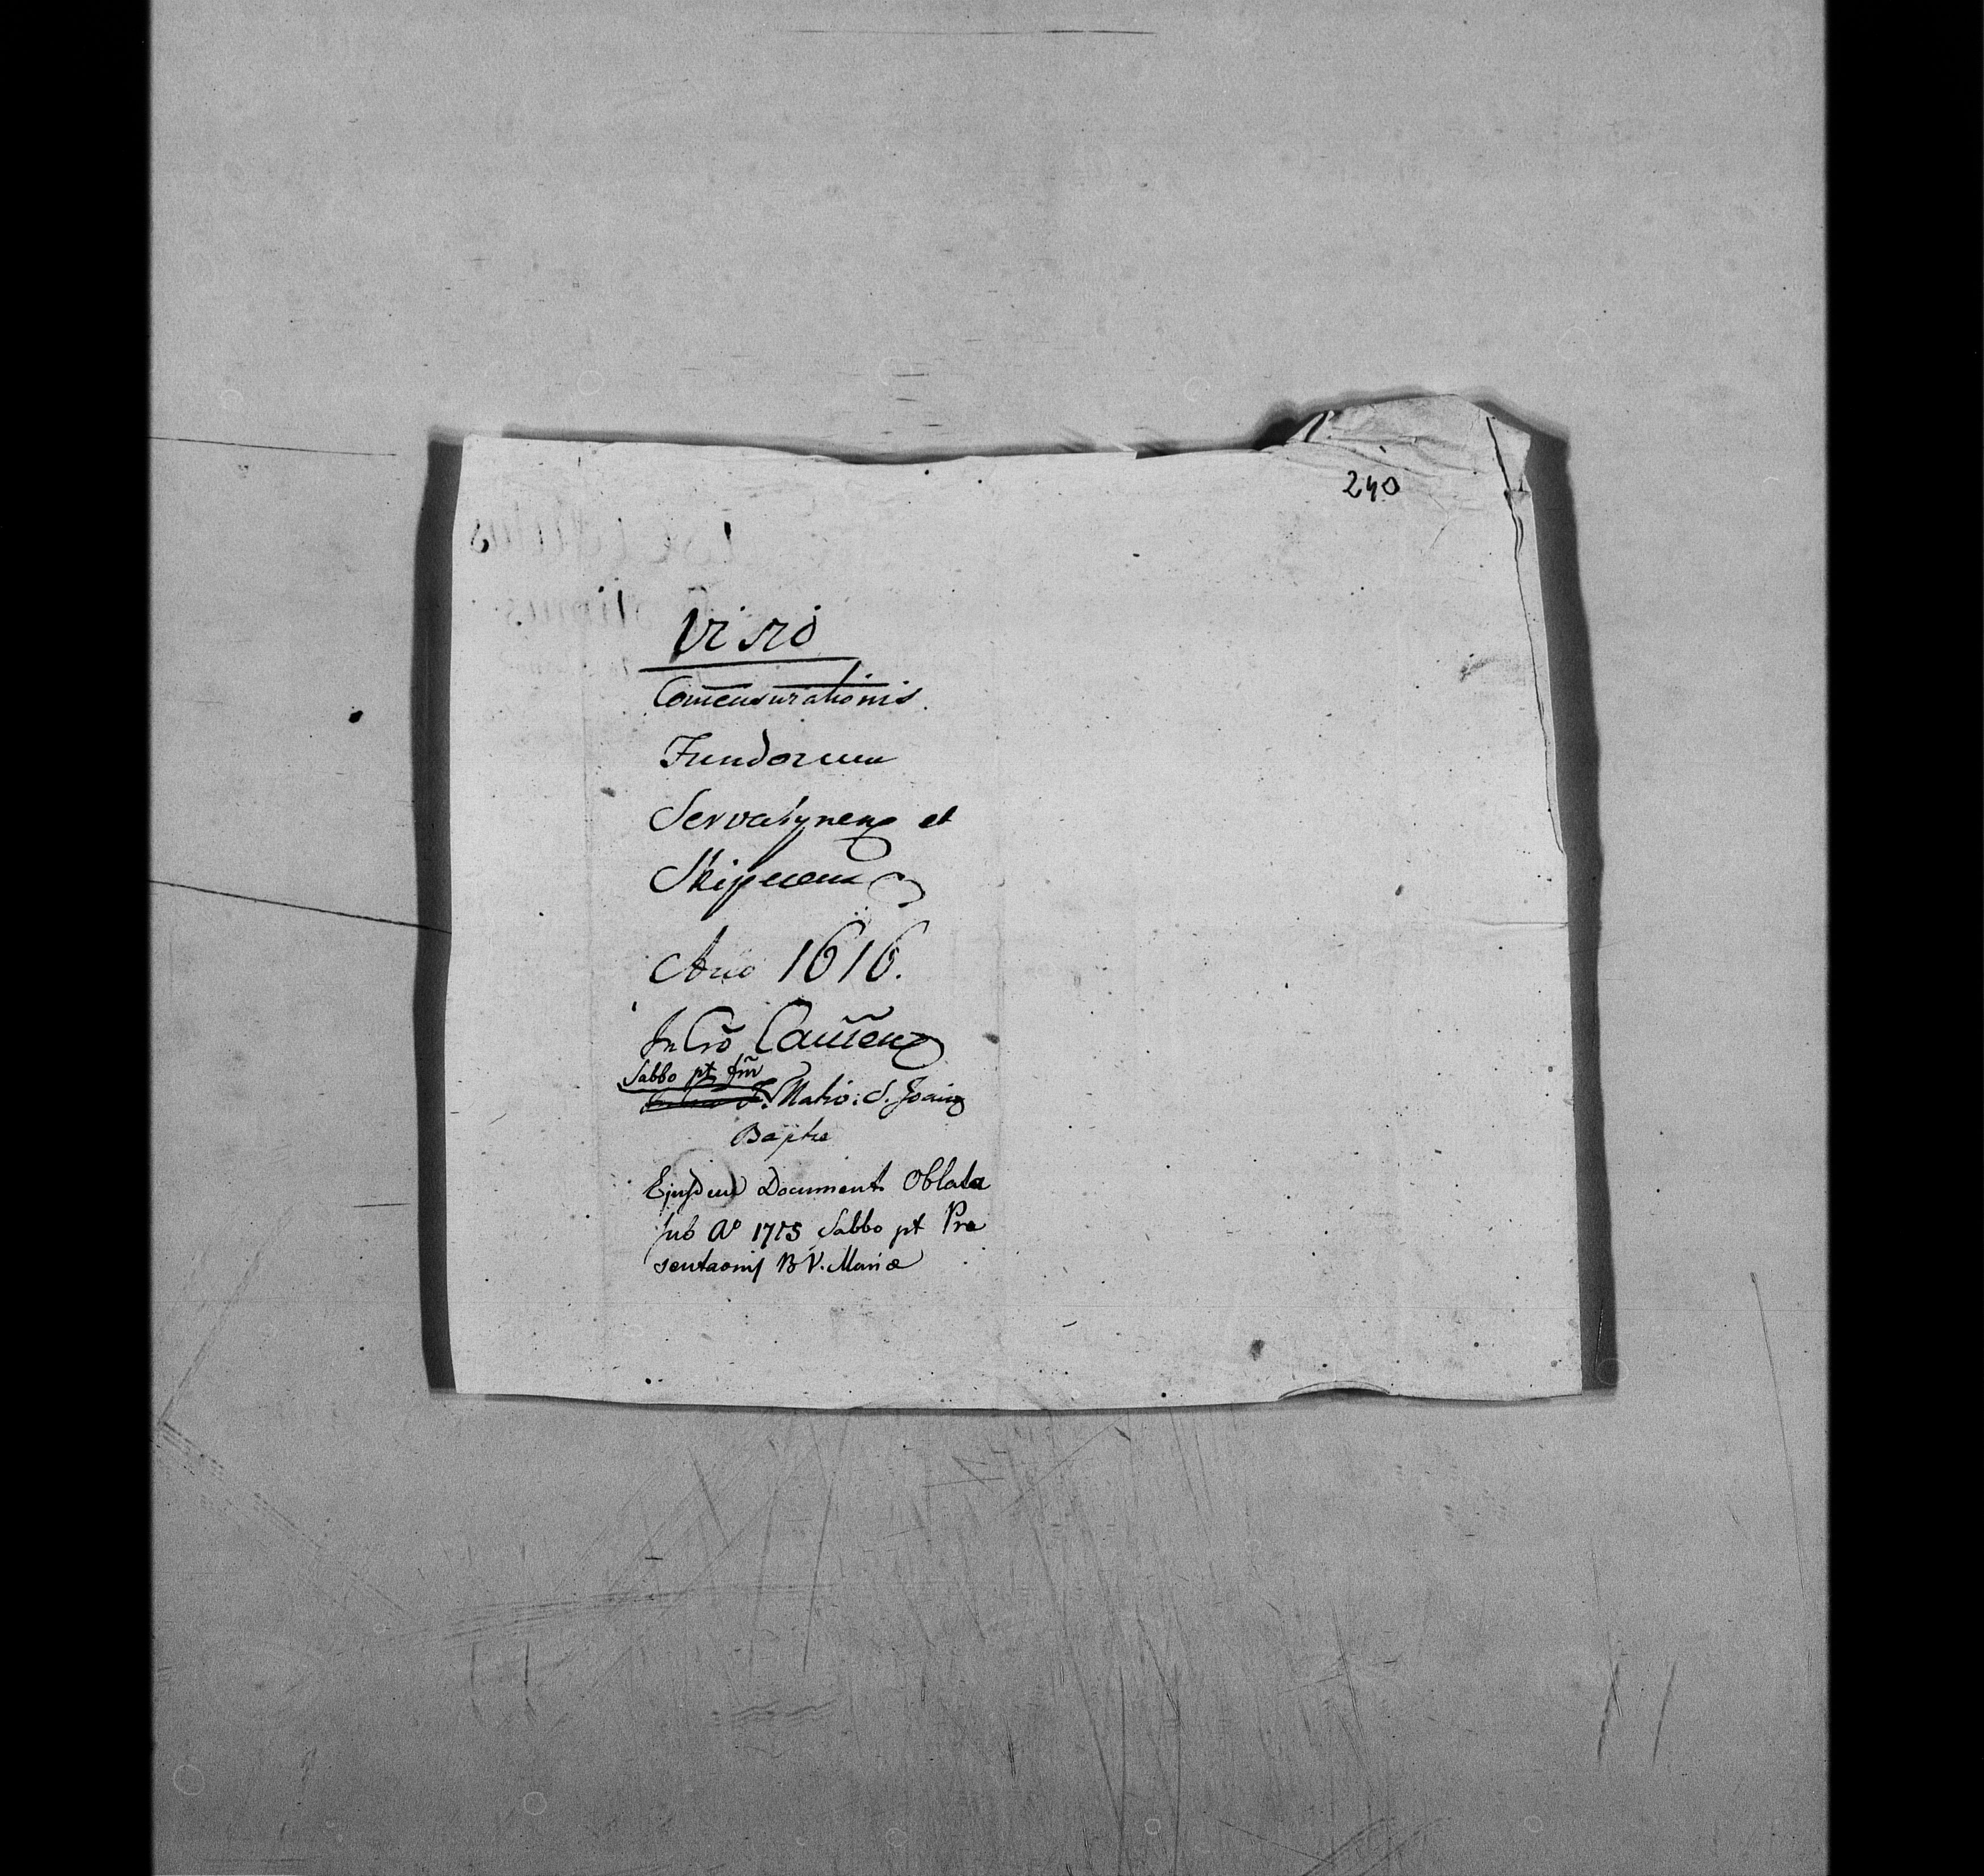 240
Visio
Com̄ensurationis
Fundorum
Servatynen et
Skipnem
Ano 1616.
In Crõ Camen
Sabbo pt fm̃
F. Nativ: S. Joan
Baptæ
Ejusdem Document Oblata
sub Aº 1775 Sabbo pt Præ
sentaonis B V. Mariæ